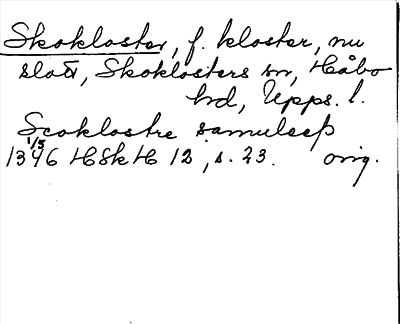 Skokloster, f. kloster, nu
slott, Skoklosters sn, Håbo
hd, Upps. l.
Scoklostre samuleep
1346 1/5 HSkH 12, s. 23. orig.